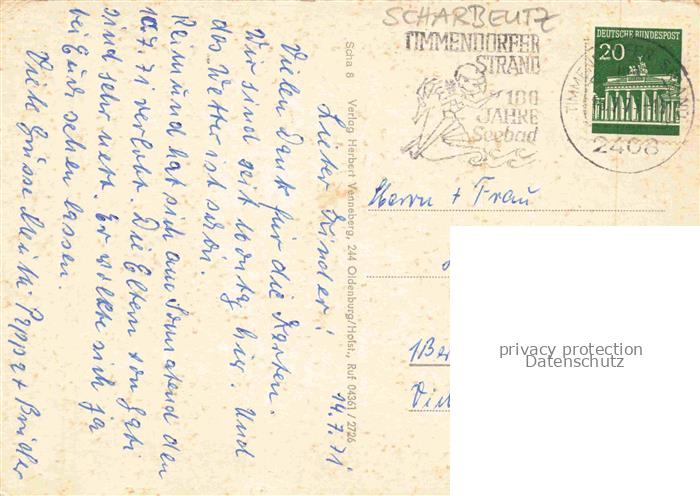 SCHARBEUTZ
TIMMENDORFER
STRAND
100
JAHRE
Seebad
DEUTSCHE BUNDESPOST
20
TIMMENDORFER STRAND
2408
14.7.71
Lieber Kinder!
Vielen Dank für die Karten.
Wir sind seit Montag hier. Und
das Wetter ist schön.
Reimund hat sich am Sonnabend den
10.7.71 verlobt. Die Eltern von Gabi
sind sehr nett. Er wollte sich ja
bei Euch sehen lassen.
Viele Grüsse Mutti Pappa + Brüder
Scha 8 Verlag Herbert Venneberg, 244 Oldenburg/Holst., Ruf 04361 / 2726
Herrn + Frau
1Ber
privacy protection
Datenschutz